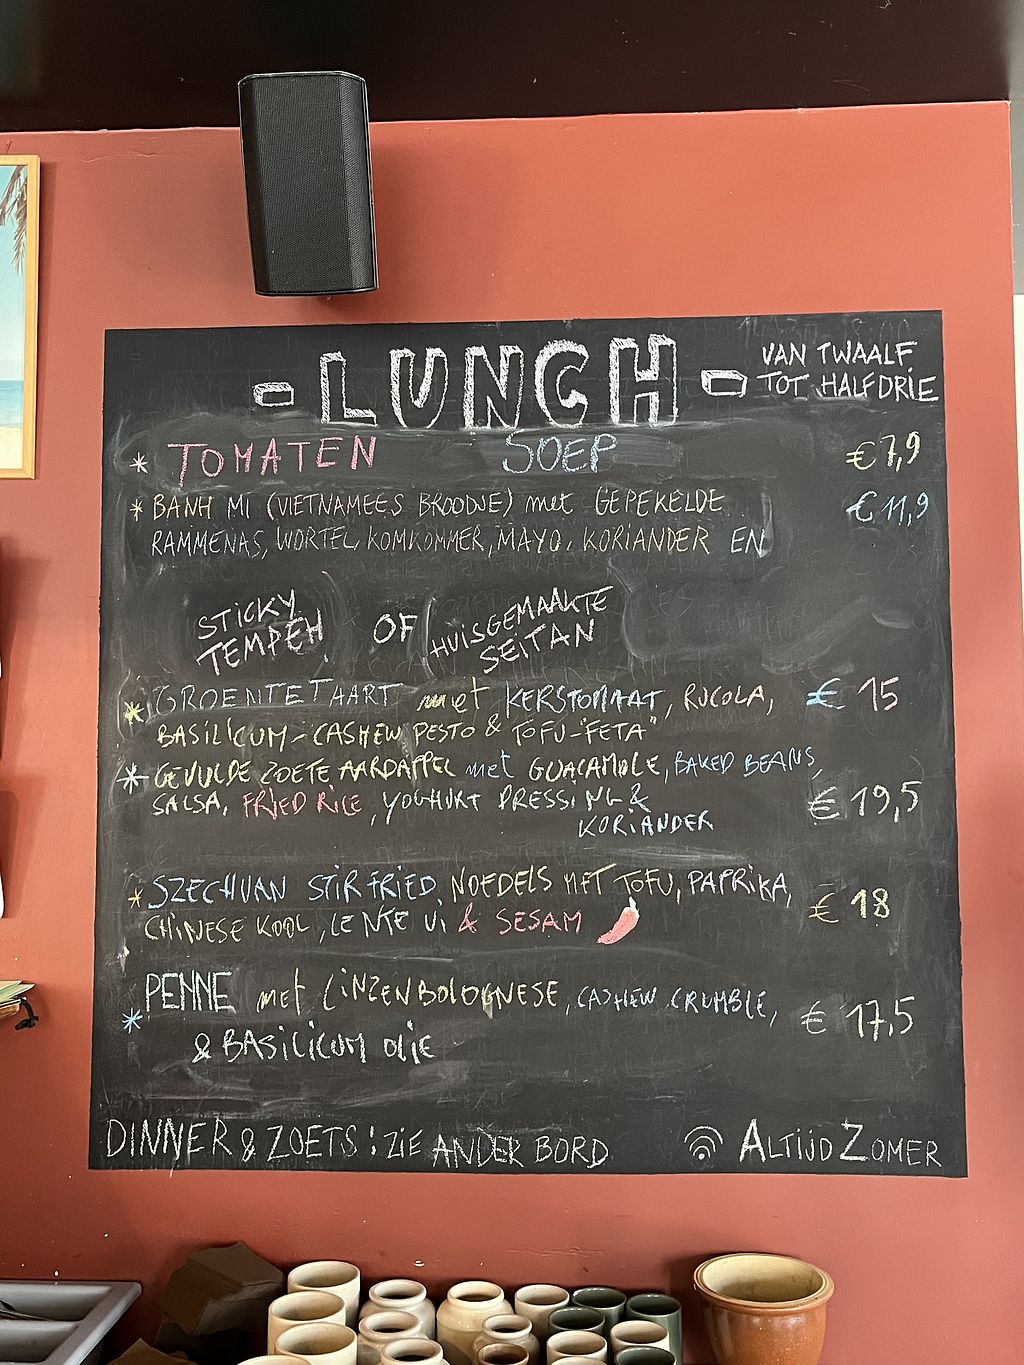 - LUNCH -
VAN TWAALF
TOT HALFDRIE
* TOMATEN SOEP €7,9
* BANH MI (VIETNAMEES BROODJE) met GEPEKELDE €11,9
RAMMENAS, WORTEL, KOMKOMMER, MAYO, KORIANDER EN
STICKY
TEMPEH
OF
HUISGEMAAKTE
SEITAN
* GROENTETAART met KERSTOMAAT, RUCOLA, € 15
BASILICUM-CASHEW PESTO & TOFU-"FETA"
* GEVULDE ZOETE AARDAPPEL met GUACAMOLE, BAKED BEANS,
SALSA, FRIED RICE, YOGHURT DRESSING & € 19,5
KORIANDER
* SZECHUAN STIR FRIED NOEDELS MET TOFU, PAPRIKA, € 18
CHINESE KOOL, LENTE UI & SESAM
* PENNE met LINZENBOLOGNESE, CASHEW CRUMBLE, € 17,5
& BASILICUM OLIE
DINNER & ZOETS: ZIE ANDER BORD
ALTIJDZOMER